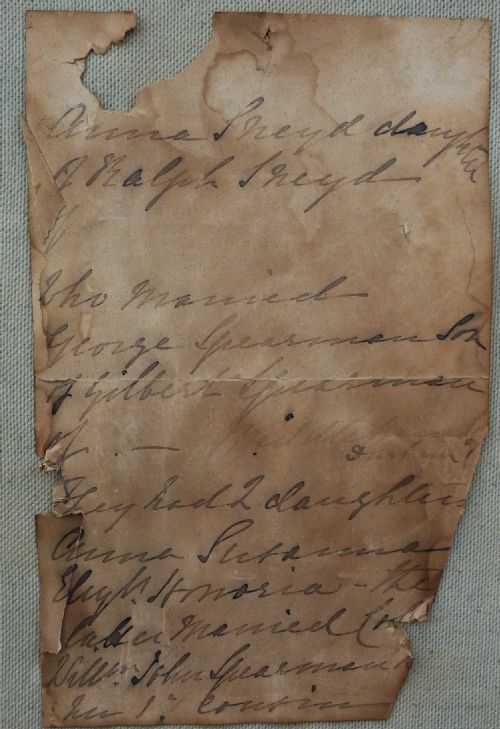 Anna Sneyd daughter
of Ralph Sneyd
of
Who Married
George Spearman Son
of Gilbert Spearman
of . —
They had 2 daughters
Anna Susanna
Elizth. Honoria - the
latter Married Col.
Willm. John Spearman
her 1st Cousin